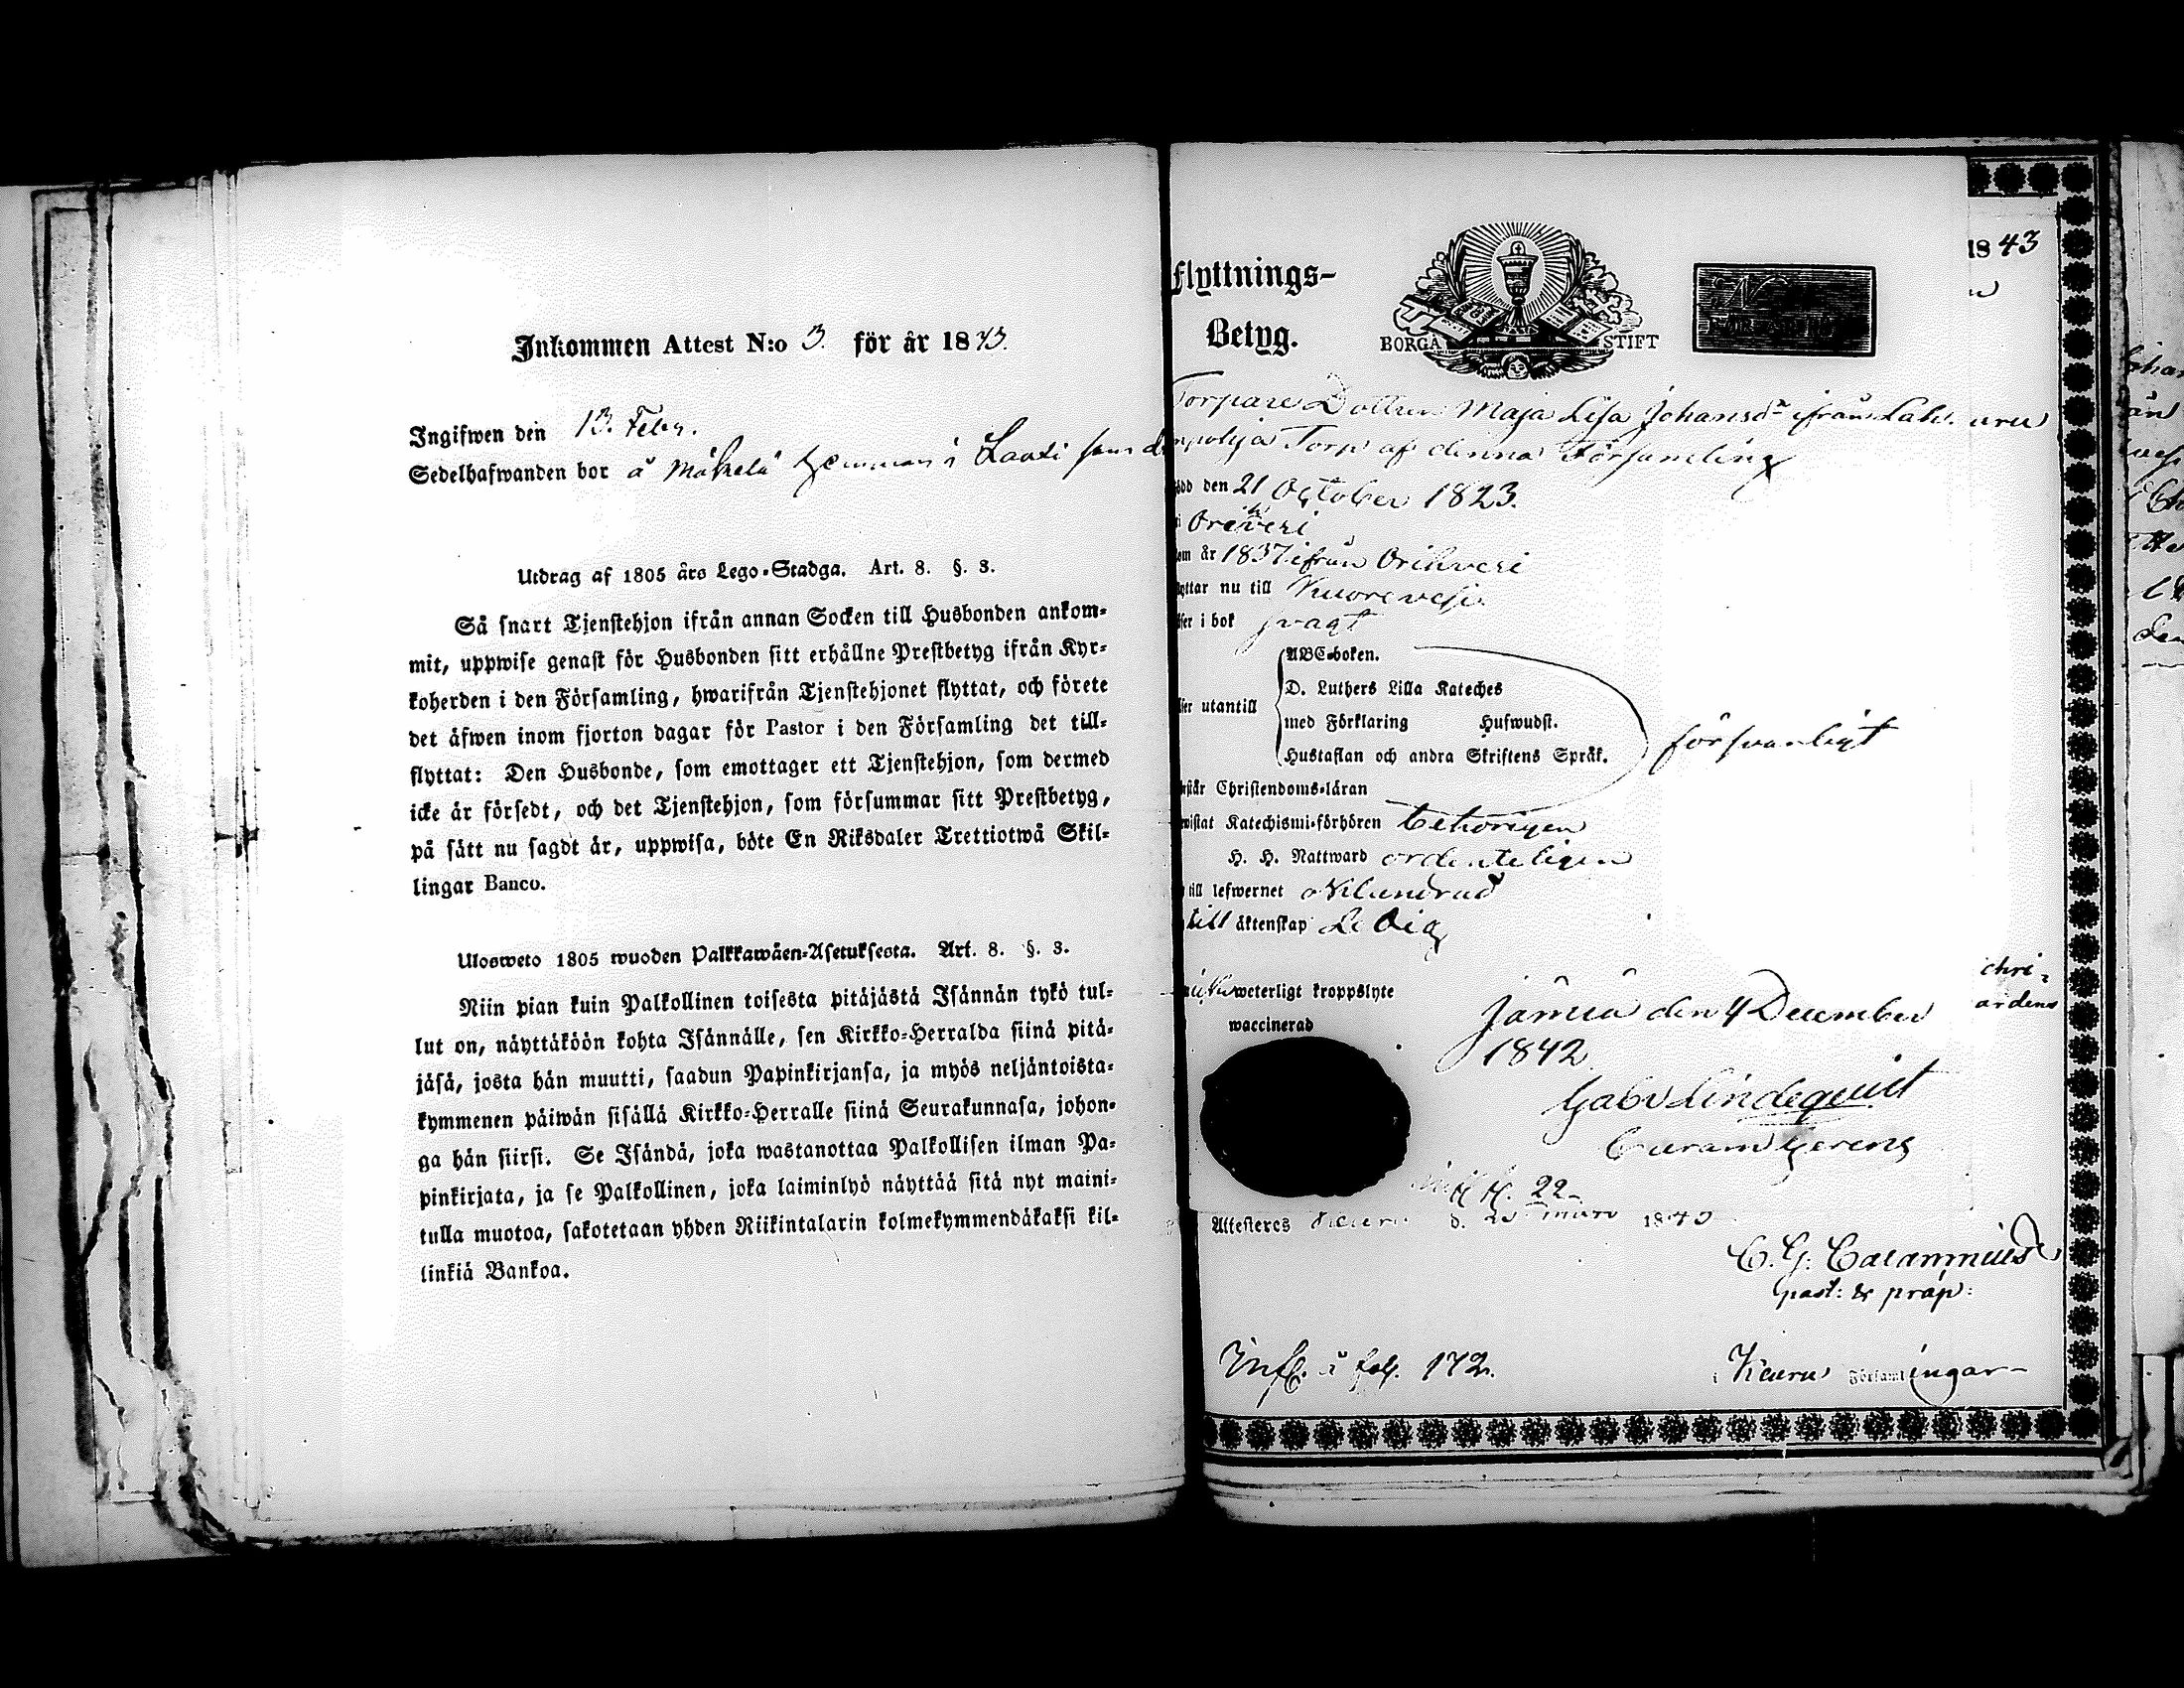 Inkommen Attest N:o 3. för år 1843.
Ingifwen den 13. Febr.
Sedelhafwanden bor å Mäkelä hemman i Lauti som
Utdrag af 1805 års Lego-Stadga. Art. 8. §. 3.
Så snart Tjenstehjon ifrån annan Socken till Husbonden ankom-
mit, uppwise genast för Husbonden sitt erhållne Prestbetyg ifrån Kyr-
koherden i den Församling, hwarifrån Tjenstehjonet flyttat, och förete
det äfwen inom fjorton dagar för Pastor i den Församling det till-
flyttat: Den Husbonde, som emottager ett Tjenstehjon, som dermed
icke är försedt, och det Tjenstehjon, som försummar sitt Prestbetyg,
på sätt nu sagdt är, uppwisa, böte En Riksdaler Trettiotwå Skil-
lingar Banco.
Ulosweto 1805 wuoden Palkkawäen-Asetuksesta. Art. 8. §. 3.
Niin pian kuin Palkollinen toisesta pitäjästä Isännän tykö tul-
lut on, näyttäköön kohta Isännälle, sen Kirkko-Herralda siinä pitä-
jäsä, josta hän muutti, saadun Papinkirjansa, ja myös neljäntoista-
kymmenen päiwän sisällä Kirkko-Herralle siinä Seurakunnasa, johon-
ga hän siirsi. Se Isändä, joka wastanottaa Palkollisen ilman Pa-
pinkirjata, ja se Palkollinen, joka laiminlyö näyttää sitä nyt maini-
tulla muotoa, sakotetaan yhden Riikintalarin kolmekymmendäkaksi kil-
linkiä Bankoa.
1843
Flyttnings-
Betyg.
BORGÅ STIFT
Torpare Dottren Maja Lisa Johansdr ifrån
Torp af denna Församling
den 21 October 1823.
Orivesi
år 1837 ifrån Orihvesi
nu till Kuorevesi
i bok svagt
utantill
ABC-boken.
D. Luthers Lilla Kateches
med Förklaring Hufwudst.
Hustaflan och andra Skriftens Språk.
försvarligt
Christendoms-läran
Katechismi-förhören behörigen
H. H. Nattward ordenteligen
till lefwernet oklandrad
till äktenskap Ledig
weterligt kroppslyte
waccinerad
Jämsä den 4 December
1842
Gabr Lindequist
Curam Gerens
22
Attesteres Keuru d. 1843
C. G. Calamnius
past: & præp:
Infl. å fol. 172.
i Keuru Församlingar